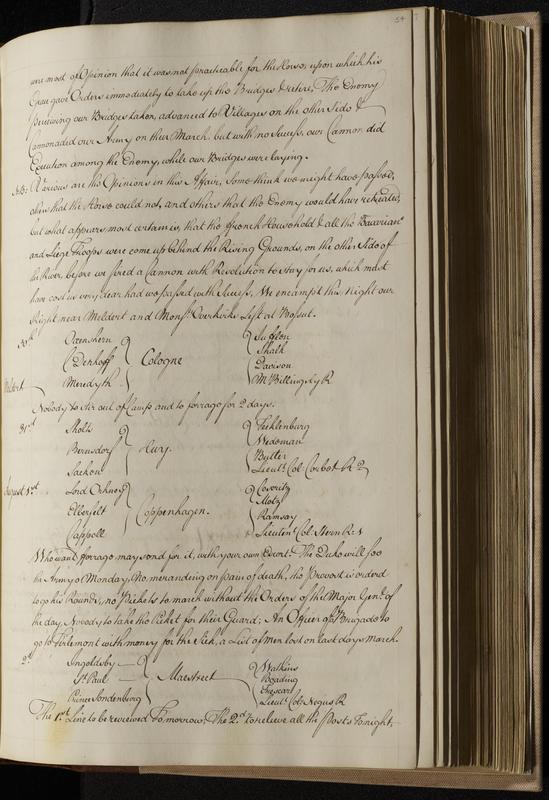 54
were most of Opinion that it was not practicable for the Horse, upon which his
Grace gave Orders immediately to take up the Bridges & retire, The Enemy
perceiving our Bridges taken, advanced to Villages on the other Side &
Cannonaded our Army on their March, but with no Success, our Cannon did
Execution among the Enemy, while our Bridges were laying.
Nb: Various are the Opinions in this Affair, Some think we might have passed,
others that the Horse could not, and others that the Enemy would have retreated,
but what appears most certain is, that the French Household & all the Bavarian
and Liege Troops were come up behind the Rising Grounds, on the other Side of
the River, before we fired a Cannon with Resolution to stay for us, which must
have cost us very dear had we passed with Success, We encampt this Night our
Right near Meldert and Monsr. Overkirks Left at Bossut.
30th Oxenstern Sutton
Denhoff Cologne Shalk
Meldert Meredyth Dawson
Mr. Billingsly R
Nobody to stir out of Camp and to forrage for 2 days.
31st Sholts Tecklenburg
Bernsdorf Huy. Wedeman
Sacken Butler
Lieut. Col: Corbet R
August 1st Lord Orkney
Ellerfelt Coppenhagen. Motz
Ramsay
Lieutent. Col: Steven R:
Who want forrage may send for it, with your own Escort. The Duke will see
the Army o' Monday, No merauding on pain of death, the Provost is order'd
to go his Rounds, no Pickets to march without the Orders of the Major Genl. of
the day, Nobody to take the Picket for their Guard; An Officer of a Brigade to
go to Tirlemont with money for the Sick, a List of men lost on last days March.
2d Ingoldsby Watkins
St. Paul Maestreet
Prince Sondenburg
Lieut. Col: Negus R
The 1st Line to be reviewed Tomorrow, The 2d to relieve all the Posts Tonight.